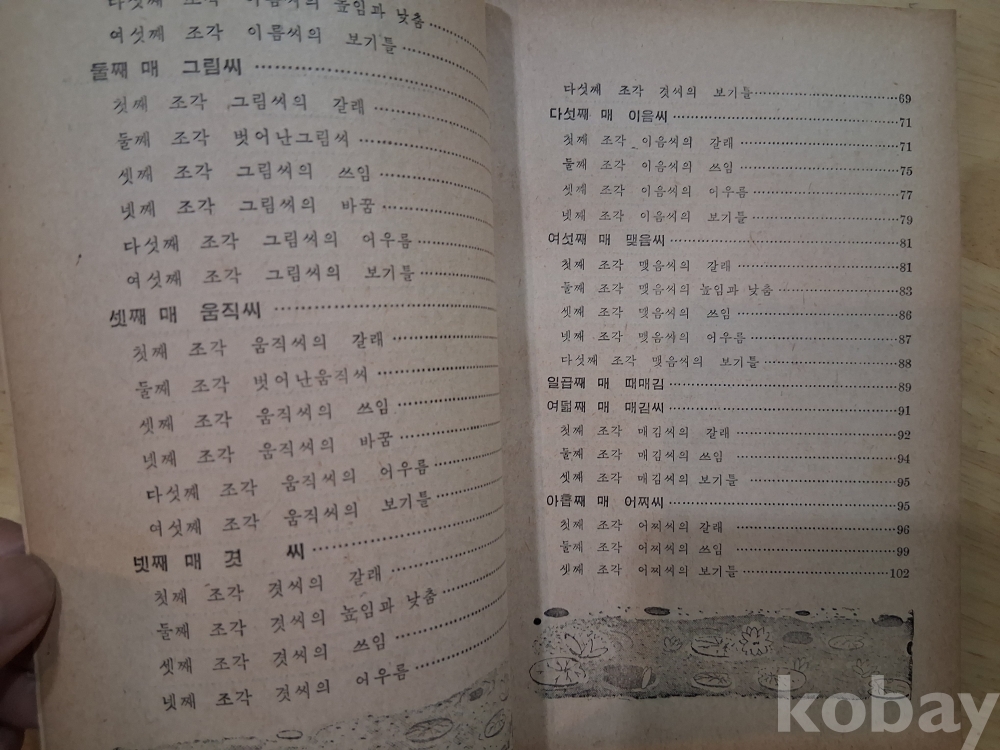 다섯째 조각 이름씨의 높임과 낮춤
여섯째 조각 이름씨의 보기틀
둘째 매 그림씨
첫째 조각 그림씨의 갈래
둘째 조각 벗어난그림씨
셋째 조각 그림씨의 쓰임
넷째 조각 그림씨의 바꿈
다섯째 조각 그림씨의 어우름
여섯째 조각 그림씨의 보기틀
셋째 매 움직씨
첫째 조각 움직씨의 갈래
둘째 조각 벗어난움직씨
셋째 조각 움직씨의 쓰임
넷째 조각 움직씨의 바꿈
다섯째 조각 움직씨의 어우름
여섯째 조각 움직씨의 보기틀
넷째 매 겻 씨
첫째 조각 겻씨의 갈래
둘째 조각 겻씨의 높임과 낮춤
셋째 조각 겻씨의 쓰임
넷째 조각 겻씨의 어우름
다섯째 조각 겻씨의 보기틀 69
다섯째 매 이음씨 71
첫째 조각 이음씨의 갈래 71
둘째 조각 이음씨의 쓰임 75
셋째 조각 이음씨의 어우름 77
넷째 조각 이음씨의 보기틀 79
여섯째 매 맺음씨 81
첫째 조각 맺음씨의 갈래 81
둘째 조각 맺음씨의 높임과 낮춤 83
셋째 조각 맺음씨의 쓰임 86
넷째 조각 맺음씨의 어우름 87
다섯째 조각 맺음씨의 보기틀 88
일곱째 매 때매김 89
여덟째 매 매김씨 91
첫째 조각 매김씨의 갈래 92
둘째 조각 매김씨의 쓰임 94
셋째 조각 매김씨의 보기틀 95
아홉째 매 어찌씨 95
첫째 조각 어찌씨의 갈래 96
둘째 조각 어찌씨의 쓰임 99
셋째 조각 어찌씨의 보기틀 102
kobay